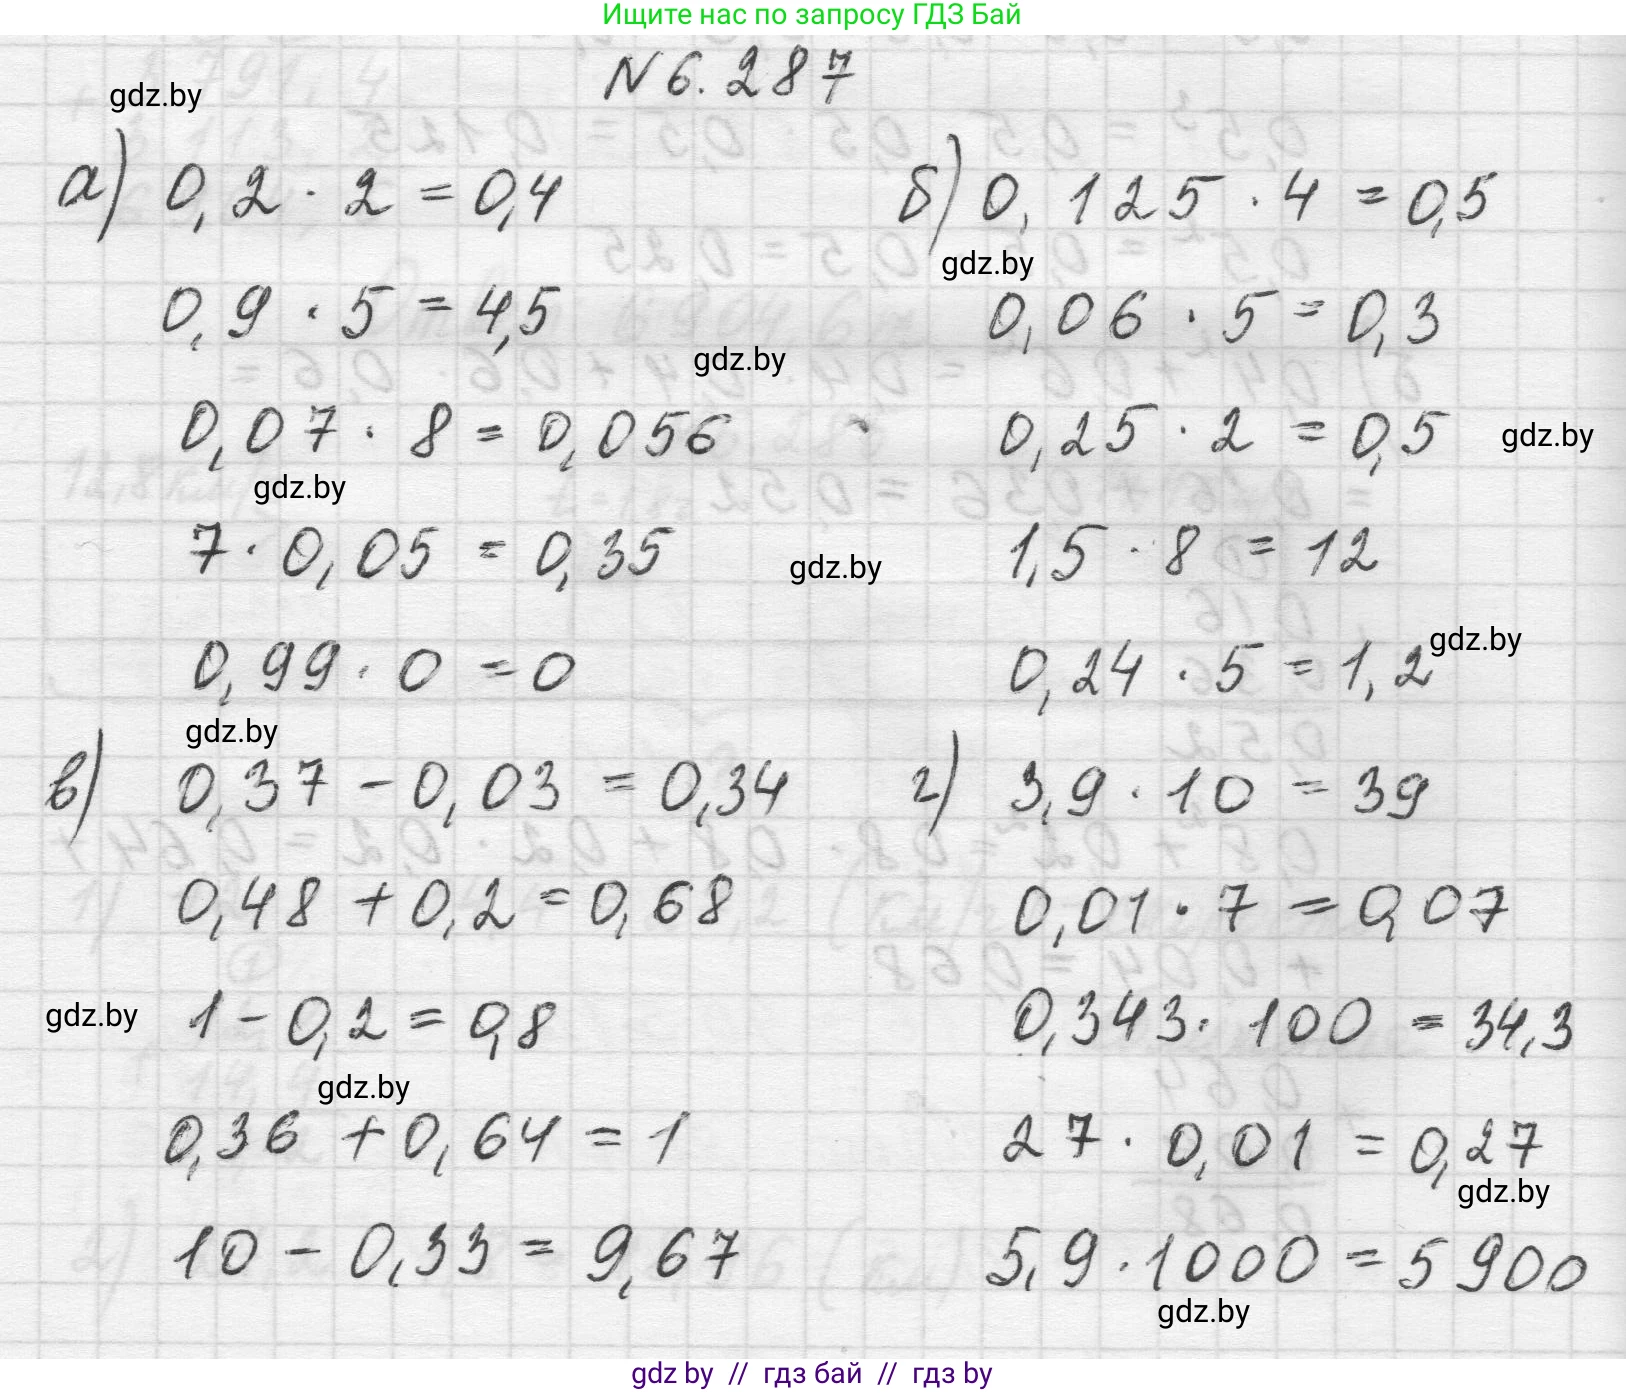 Ищите нас по запросу ГДЗ Бай
N 6.287
gdz.by
а) 0,2 · 2 = 0,4
0,9 · 5 = 4,5
gdz.by
0,07 · 8 = 0,056
gdz.by
7 · 0,05 = 0,35
gdz.by
0,99 · 0 = 0
б) 0,125 · 4 = 0,5
gdz.by
0,06 · 5 = 0,3
0,25 · 2 = 0,5
gdz.by
1,5 · 8 = 12
gdz.by
0,24 · 5 = 1,2
gdz.by
в) 0,37 - 0,03 = 0,34
0,48 + 0,2 = 0,68
gdz.by
1 - 0,2 = 0,8
gdz.by
0,36 + 0,64 = 1
10 - 0,33 = 9,67
г) 3,9 · 10 = 39
0,01 · 7 = 0,07
0,343 · 100 = 34,3
27 · 0,01 = 0,27
gdz.by
5,9 · 1000 = 5900
gdz.by
gdz by // гдз бай // гдз by